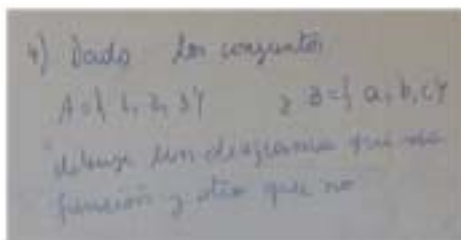 4) Dado los conjuntos
A={ 1, 2, 3} y B={ a, b, c}
dibuje un diagrama que sea
función y otro que no